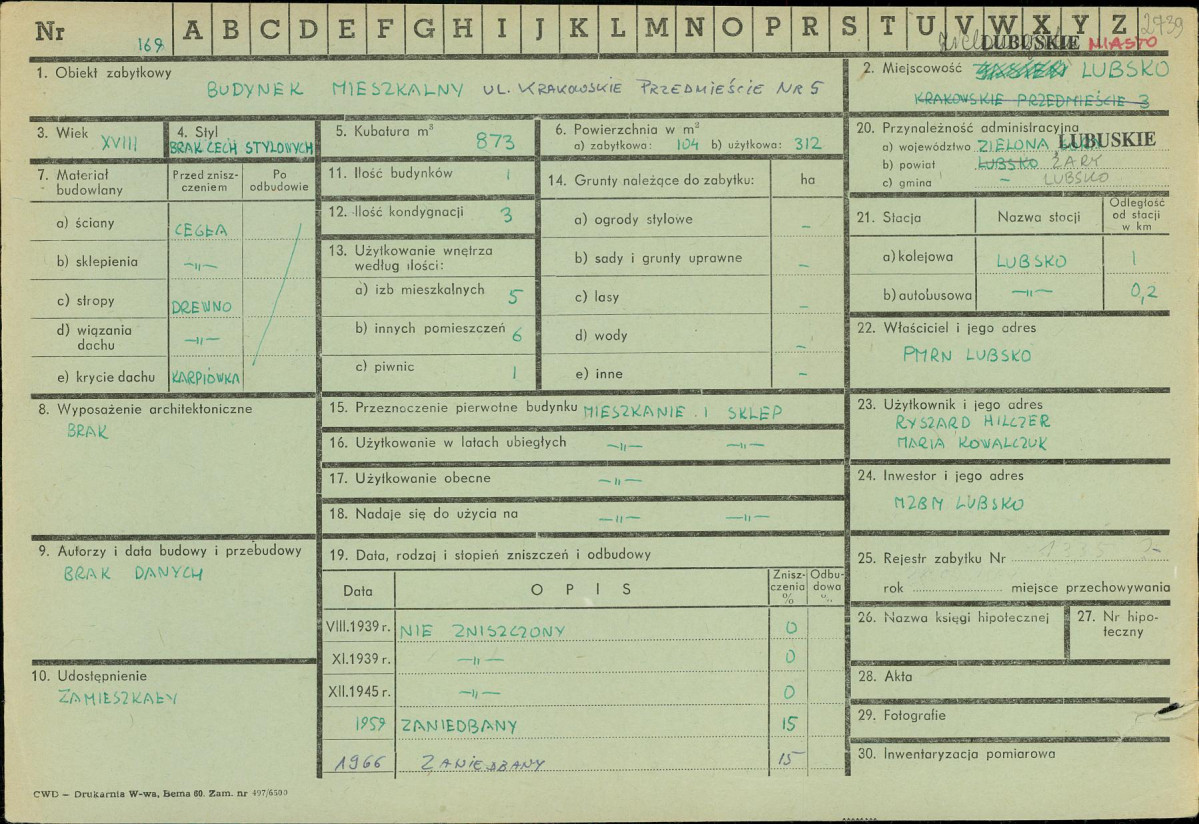 Nr 169 A B C D E F G H I J K L M N O P R S T U V W X Y Z 2739
LUBUSKIE MIASTO
1. Obiekt zabytkowy
BUDYNEK MIESZKALNY UL. KRAKOWSKIE PRZEDMIEŚCIE NR 5
2. Miejscowość LUBSKO
KRAKOWSKIE PRZEDMIEŚCIE 3
3. Wiek XVIII
4. Styl
BRAK CECH STYLOWYCH
5. Kubatura m³ 873
6. Powierzchnia w m²
a) zabytkowa: 104 b) użytkowa: 312
7. Materiał budowlany
Przed zniszczeniem
Po odbudowie
a) ściany CEGŁA
b) sklepienia —„—
c) stropy DREWNO
d) wiązania dachu —„—
e) krycie dachu KARPIÓWKA
8. Wyposażenie architektoniczne
BRAK
9. Autorzy i data budowy i przebudowy
BRAK DANYCH
10. Udostępnienie
ZAMIESZKAŁY
11. Ilość budynków 1
12. Ilość kondygnacji 3
13. Użytkowanie wnętrza
według ilości:
a) izb mieszkalnych 5
b) innych pomieszczeń 6
c) piwnic 1
14. Grunty należące do zabytku: ha
a) ogrody stylowe –
b) sady i grunty uprawne –
c) lasy –
d) wody –
e) inne –
15. Przeznoczenie pierwotne budynku MIESZKANIE I SKLEP
16. Użytkowanie w latach ubiegłych —„— —„—
17. Użytkowanie obecne —„—
18. Nadaje się do użycia na —„— —„—
19. Data, rodzaj i stopień zniszczeń i odbudowy
Data OPIS Zniszczenia % Odbudowa %
VIII.1939 r. NIE ZNISZCZONY 0
XI.1939 r. —„— 0
XII.1945 r. —„— 0
1959 ZANIEDBANY 15
1966 ZANIEDBANY 15
20. Przynależność administracyjna
a) województwo ZIELONA LUBUSKIE
b) powiat LUBSKO ŻARY
c) gmina – LUBSKO
21. Stacja Nazwa stacji Odległość od stacji w km
a) kolejowa LUBSKO 1
b) autobusowa —„— 0,2
22. Właściciel i jego adres
PMRN LUBSKO
23. Użytkownik i jego adres
RYSZARD HILCZER
MARIA KOWALCZUK
24. Inwestor i jego adres
MZBM LUBSKO
25. Rejestr zabytku Nr
rok miejsce przechowywania
26. Nazwa księgi hipotecznej
27. Nr hipoteczny
28. Akta
29. Fotografie
30. Inwentaryzacja pomiarowa
CWD – Drukarnia W-wa, Bema 60. Zam. nr 497/6500